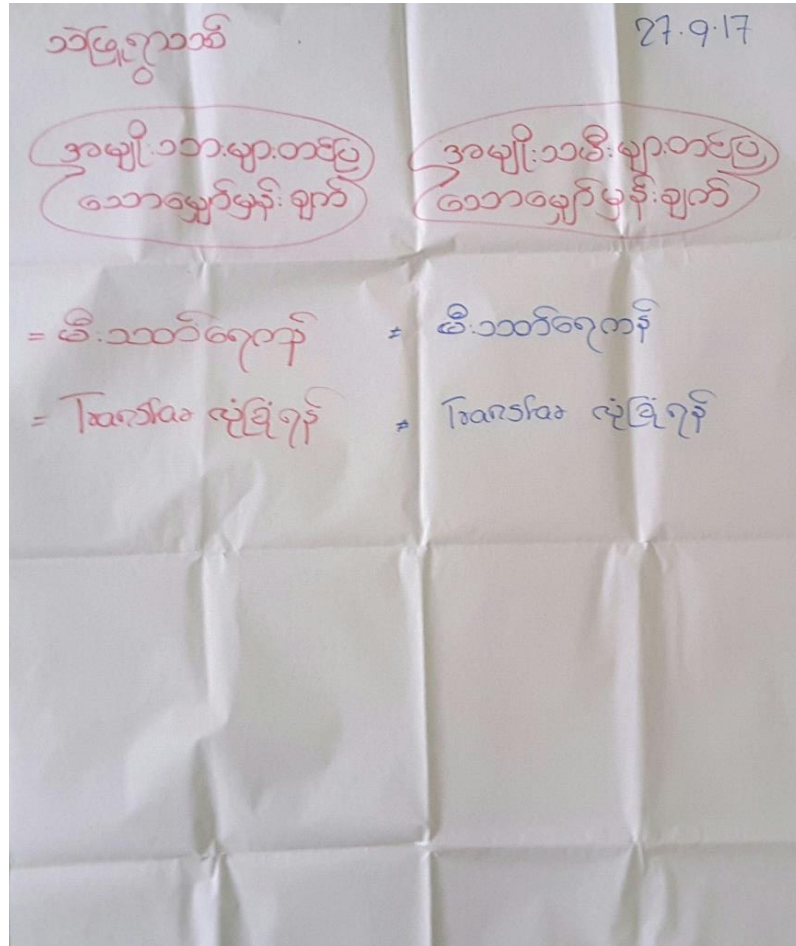 သဲဖြူရွာသစ်
27.9.17
အမျိုးသားများတင်ပြ
သောမျှော်မှန်းချက်
အမျိုးသမီးများတင်ပြ
သောမျှော်မှန်းချက်
= မီးသတ်ရေကန်
= Transfar လုံခြုံရန်
= မီးသတ်ရေကန်
= Transfar လုံခြုံရန်